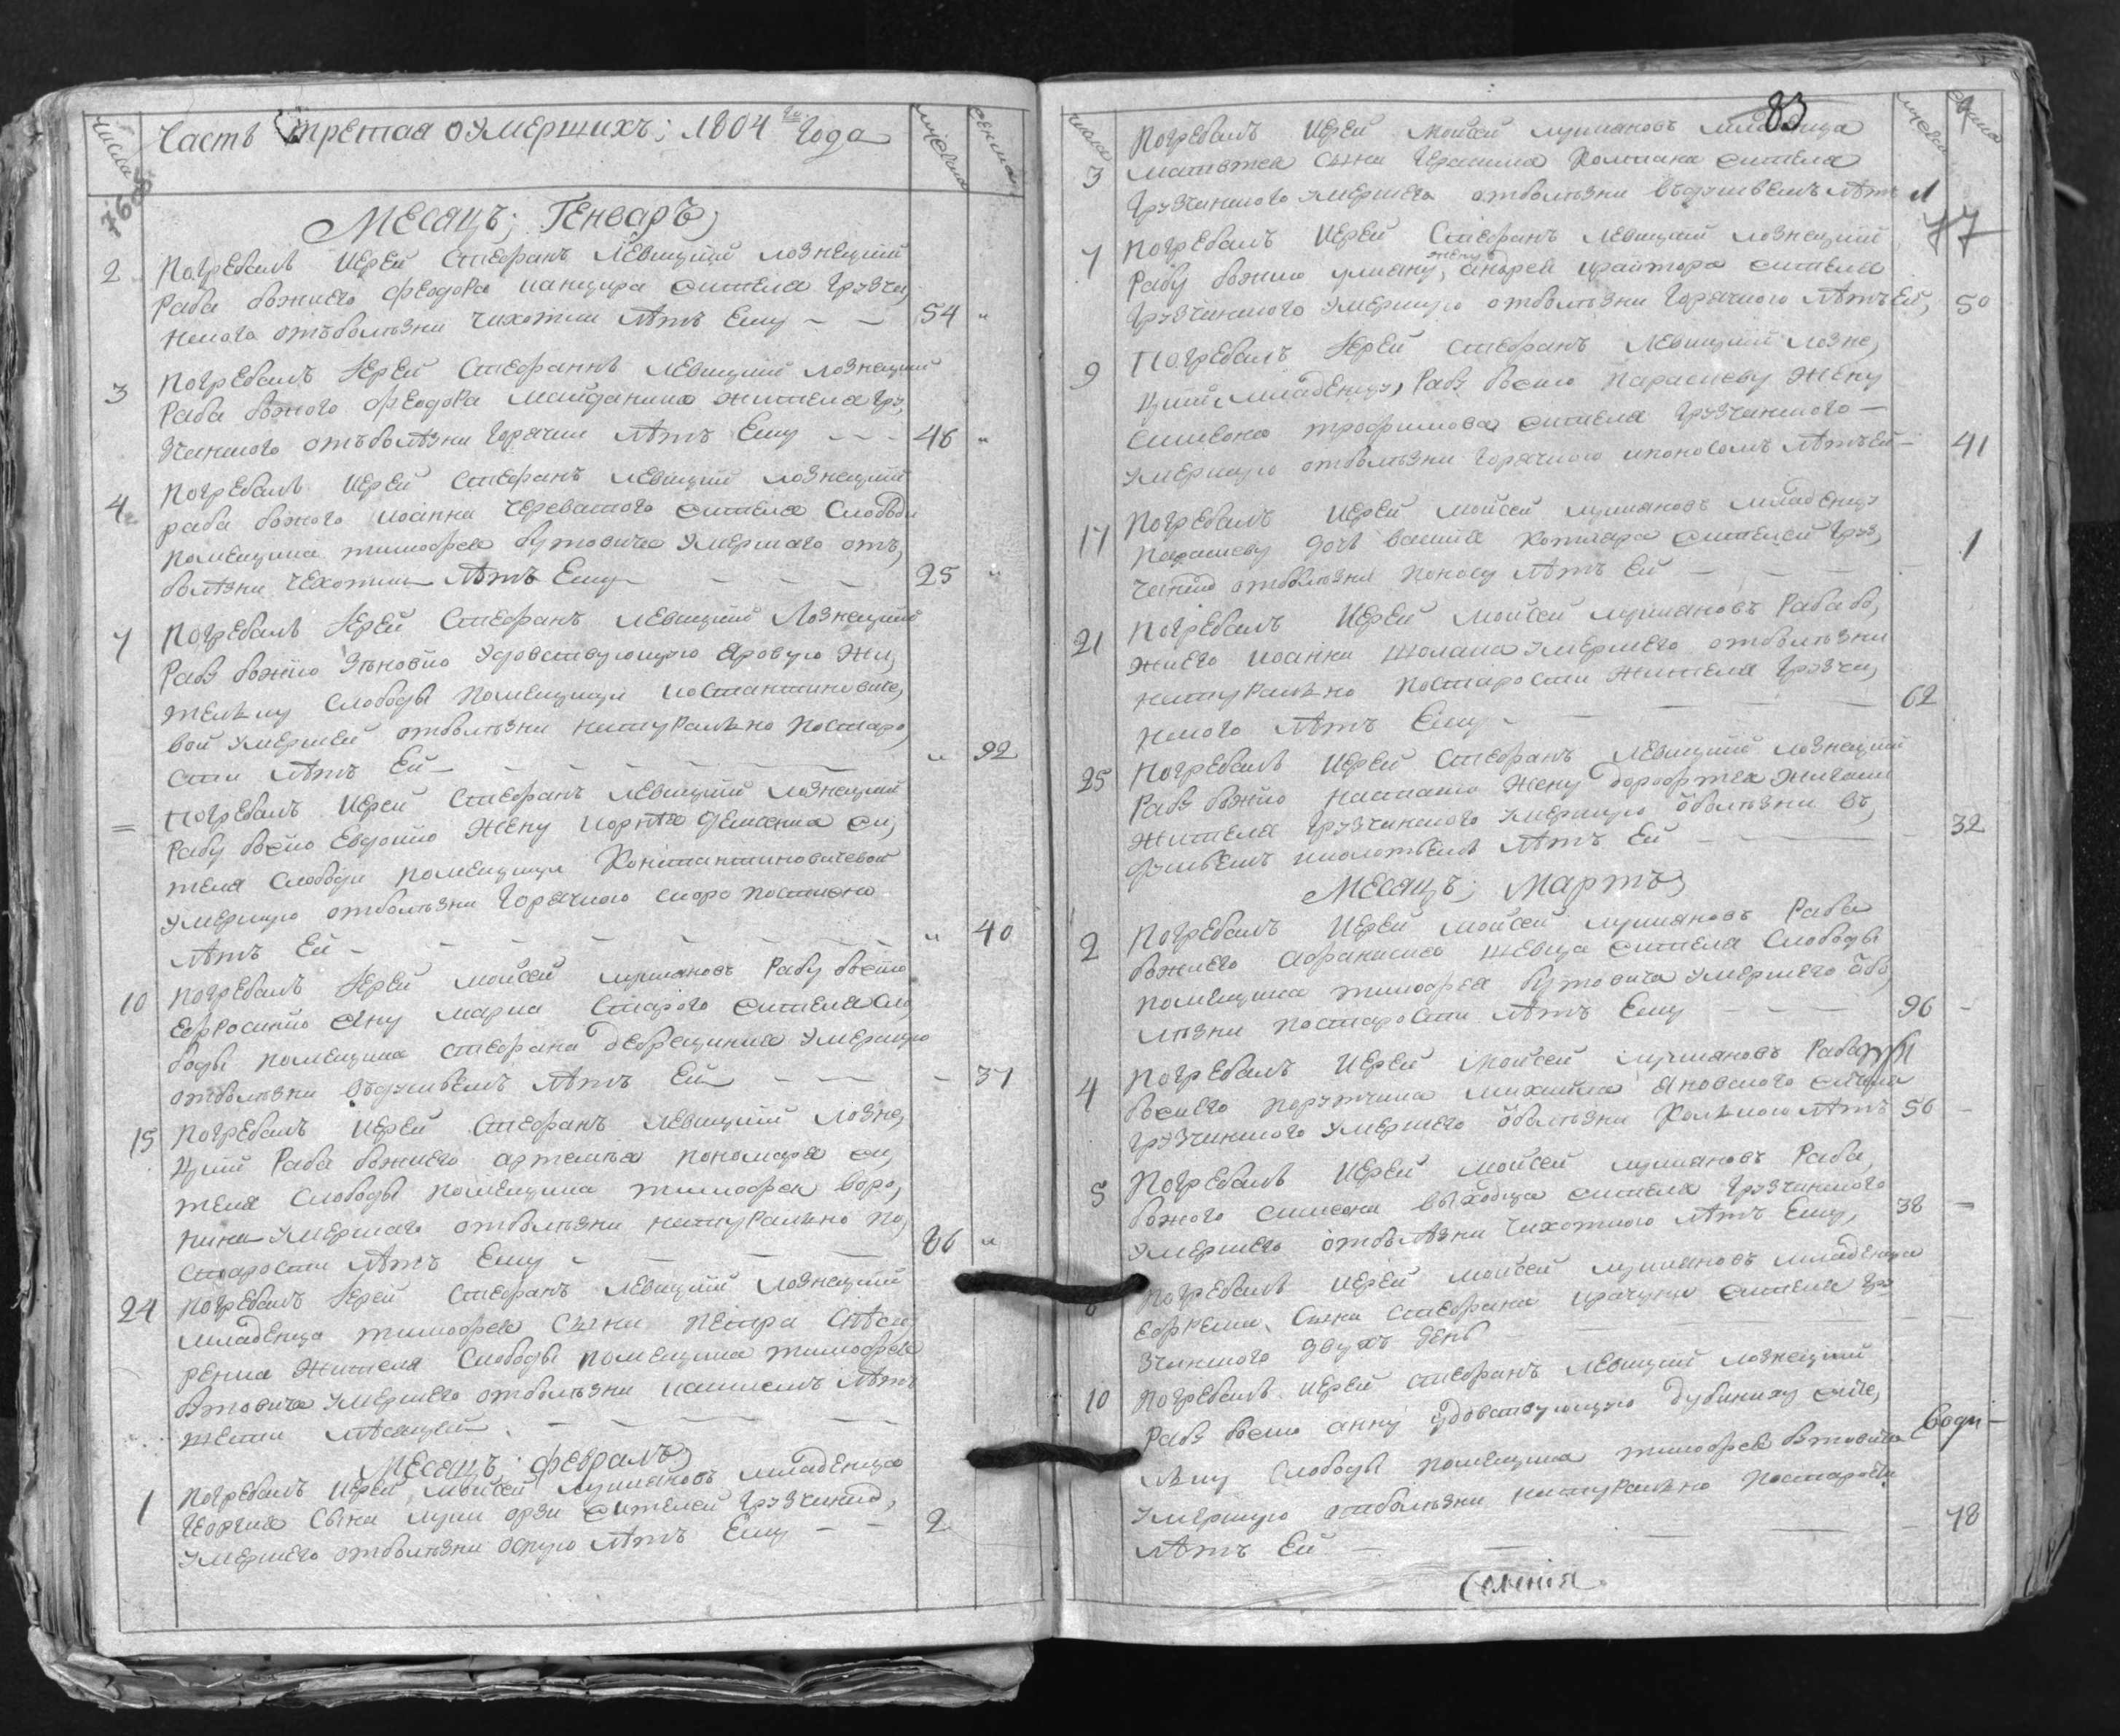 Числа
Часть третая о умершихъ; 1804 го Года
мужеска
женска
768
Месяцъ; Генваръ,
2
Погребалъ Иерей Стефанъ Левицкий Лознецкий
Раба Божиего Феодора жителя Грузчи,
нского отъболѣзни чихотки лѣтъ Ему
54
3
Погребалъ Иерей Стефанъ Левицкий Лознецкий
Раба божого Феодора Майданика жителя Гру,
зчинского отъболѣзни горячки лѣтъ Ему
46
4
Погребалъ Иерей Стефанъ Левицкий Лознецкий
раба божого Иоанна Череватого жителя Слободи
Помещика тимофея Бутовича умершаго отъ,
болѣзни чехотки лѣтъ Ему
25
7
Погребалъ Иерей Стефанъ Левицкий Лознецкий
Рабу божию Зѣновию удовствующую Яровую жи,
телку Слободы Помещици Костантиновиче,
вой умершей отболѣзни натурално постаро,
сти лѣтъ Ей
92
=
Погребалъ Иерей Стефанъ Левицкий Лознецкий
Рабу божию Евдокию жену жи,
теля Слободи помещици Константиновичевой
умершую отболѣзни горячкою скоро постижно
лѣтъ Ей
40
10
Погребалъ Иерей Мойсей Лукиановъ Рабу божию
Ефросинию жену марка Старого жителя Сло,
боды помещика стефана умершую
отболѣзни лѣтъ Ей
37
15
Погребалъ Иерей Стефанъ Левицкий Лозне,
цкий Раба божиего артемия пономаря жи,
теля Слободы помещика тимофея
умершаго отболѣзни натурално по,
старости лѣтъ Ему
86
24
Погребалъ Иерей Стефанъ Левицкий Лознецкий
младенца тимофея сына Петра
жителя Слободы помещика тимофея
Бутовича умершего отболѣзни кашлемъ лѣтъ
мѣсяцей
Месяцъ; февралъ,
1
Погребалъ Иерей Мойсей Лукиановъ младенца
Георгия сына жителей Грузчинско,
умершего отболѣзни оспою лѣтъ Ему
2
83
77
числа
мужеска
3
Погребалъ Иерей Мойсей Лукиановъ младенца
матвѣя сына Герасима жителя
Грузчинского умершего отболѣзни лѣтъ
1
7
Погребалъ Иерей Стефанъ Левицкий Лознецкий
жену
Рабу божию улияну, андрея жителя
Грузчинского умершую отболѣзни горячкою лѣтъ Ей,
50
9
Погребалъ Иерей Стефанъ Левицкий Лозне,
цкий младенцу, Рабу божию Параскеву жену
Симеона трофимова жителя Грузчинского
умершую отболѣзни горячкою ипоносомъ лѣтъ Ей
41
17
Погребалъ Иерей Мойсей Лукиановъ младенцу
Параскеву дочь василия Котляра жителей Груз,
чинско отболѣзни поносу лѣтъ Ей
1
21
Погребалъ Иерей Мойсей Лукиановъ Раба бо,
жиего Иоанна умершего отболѣзни
натурално постарости жителя Грузчи,
нского лѣтъ Ему
62
25
Погребалъ Иерей Стефанъ Левицкий Лознецкий
Рабу божию жену дорофтея
жителя Грузчинского умершую отболѣзни
лѣтъ Ей
32
Месяцъ; Мартъ,
2
Погребалъ Иерей Мойсей Лукиановъ Раба
божиего Афанасия Шевца жителя Слободы
помещика тимофея Бутовича умершего отбо,
лѣзни постарости лѣтъ Ему
96
4
Погребалъ Иерей Мойсей Лукиановъ Раба
божиего поручика михаила Яновского жителя
Грузчинского умершего отболѣзни лѣтъ
56
5
Погребалъ Иерей Мойсей Лукиановъ Раба,
божого симеона выходца жителя Грузчинского
умершего отболѣзни чихоткою лѣтъ Ему,
38
6
Погребалъ Иерей Мойсей Лукиановъ младенца
Ефрема, сына стефана жителя Гру
зчинского двухъ день
10
Погребалъ Иерей Стефанъ Левицкий Лознецкий
Рабу божию анну удовствующую Дубиниху жите,
лку Слободы помещика тимофея Бутовича
умершую отболѣзни натурално постарости
лѣтъ Ей
78